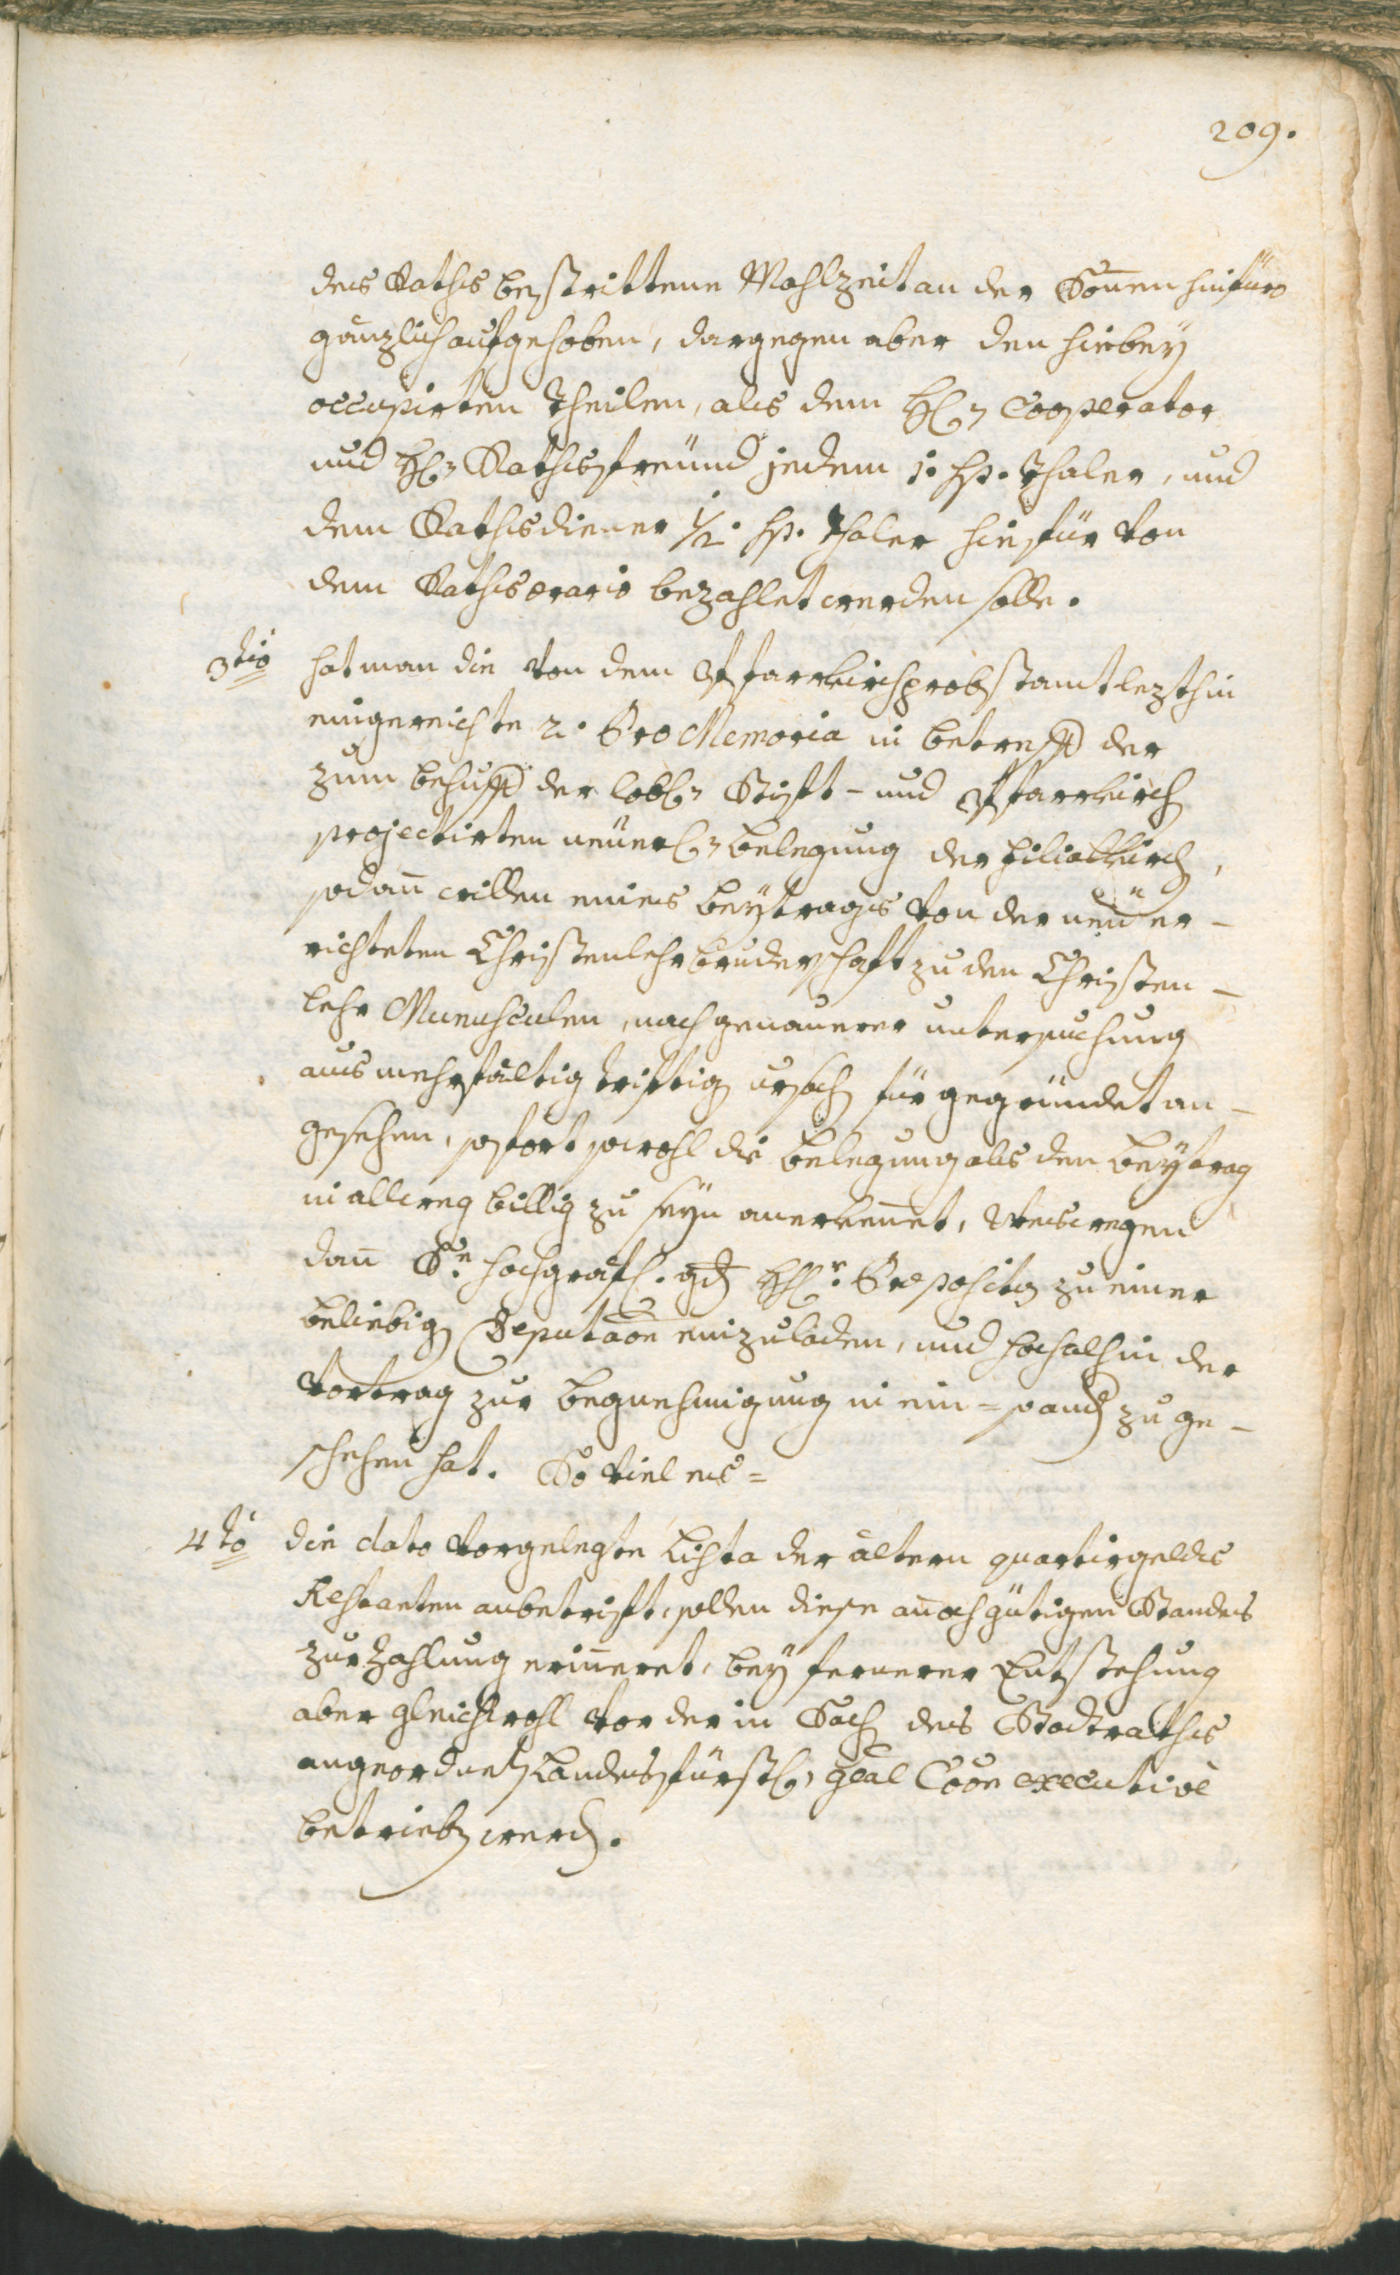 209.
des Raths bestrittene Mahlzeit an der Soñen hinfüro
gänzlich aufgehoben, dargegen aber den hiebey
occupirten Theilen, als dem H: Cooperator
und H: Rathsfreünd jedem 1. sp. Thaler, und
dem Rathsdiener ½. sp. Thaler hiefür von
dem Raths ærario bezahlet werden solle.
3tiò hat man die von dem Pfarrkirchprobstamt lezthin
eingereichte 2. Pro Memoria in betreff der
zum behuff der löbl: Stift- und Pfarrkirch
projectirten neüerl: belegung der Filialkirch,
sodañ willen eines beytrags von der neü er-
richteten Christenlehrbruderschaft zu den Christen-
lehr Munusculen, nach genauerer untersuchung
aus mehrfältig triftig ursach für gegründet an-
gesehen, sofort sowohl die belegung als den beytrag
in allweg billig zu seyn anerkeñet, weswegen
dañ Se. hochgräfl. gd H: Præposito zu einer
beliebig Deputaõn einzuladen, und hochalhin der
Vortrag zur begnehmigung in ein= zu ge-
schehen hat. So viel es=
4tò die dato vorgelegte Lista der ältern quartiergelds
Restanten anbetrift, sollen diese añoch gütigen Standes
zur Zahlung eriñeret, bey fernerer Entstehung
aber gleichwohl vor der in Sach des Stadtraths
angeordnet Landesfürstl: gral Coõn executivè
betrieb werd.